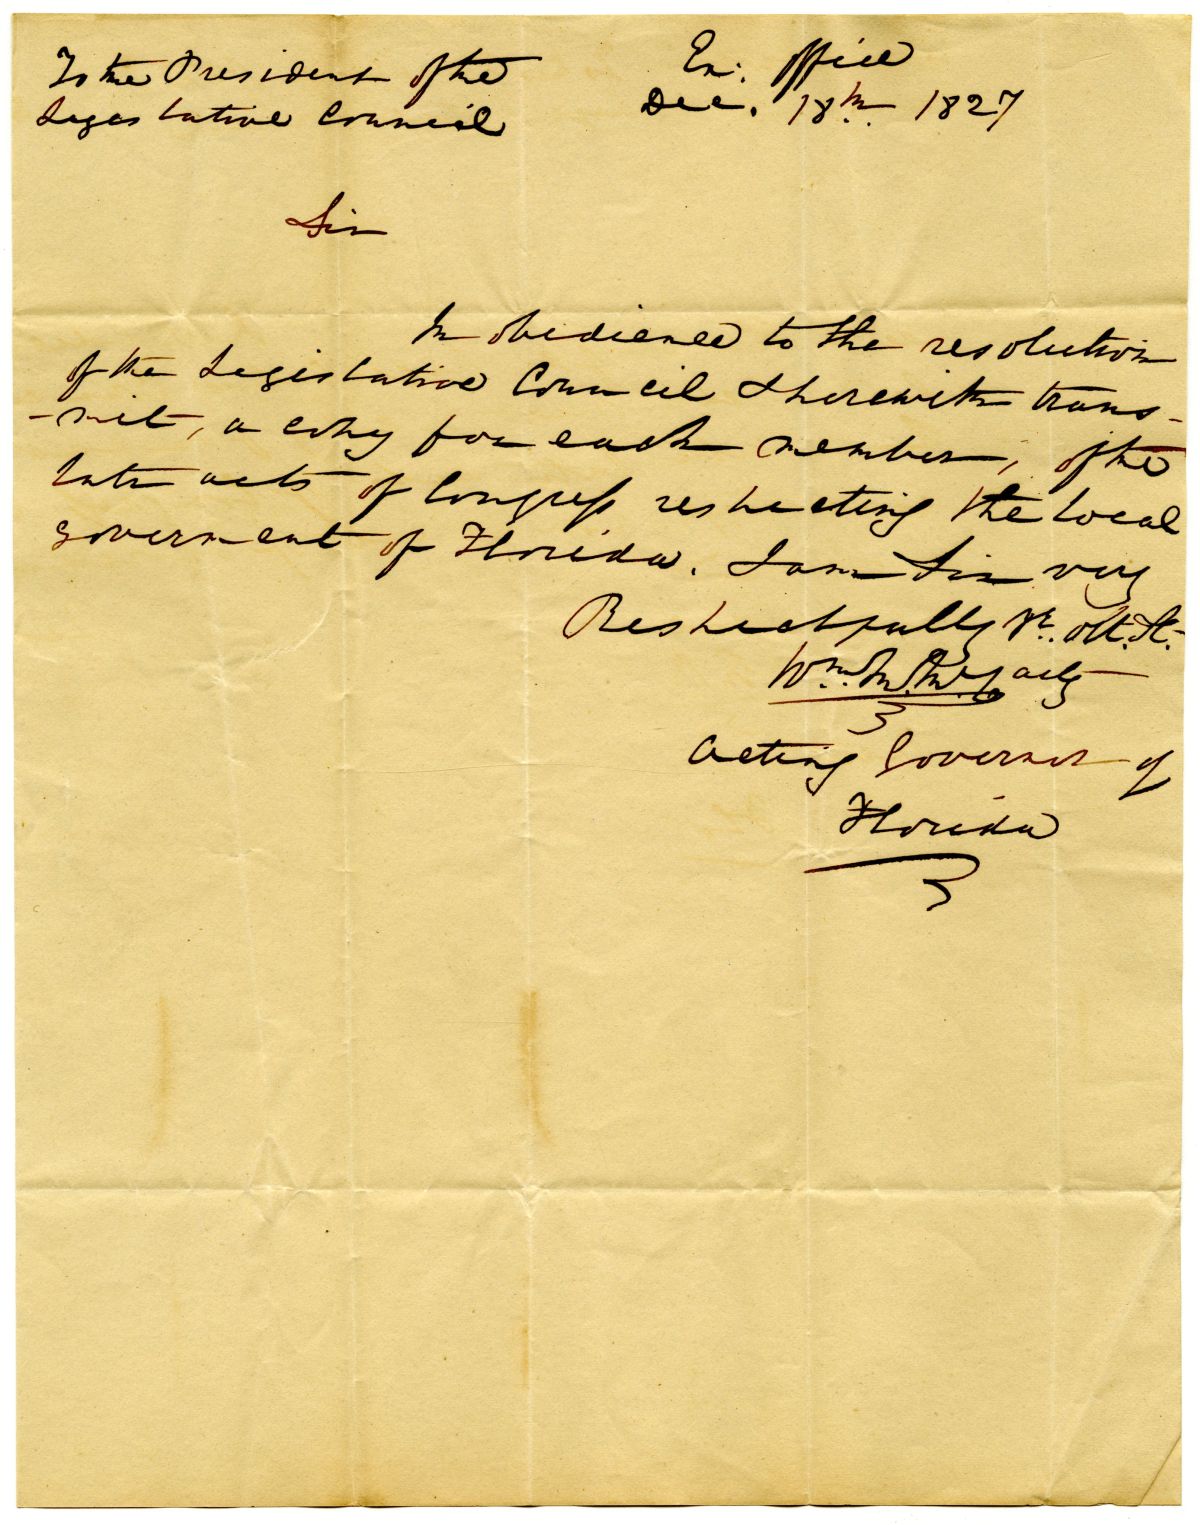 To the President of the
Legislative Council
Ex: office
Dec. 18th. 1827
Sir
In obedience to the resolution
of the Legislative Council I herewith trans-
-mit, a copy for each member, of the
late acts of Congress respecting the local
government of Florida. I am Sir very
Respectfully Yr. obt. St.
Wm. M. McCarty
Acting Governor of
Florida